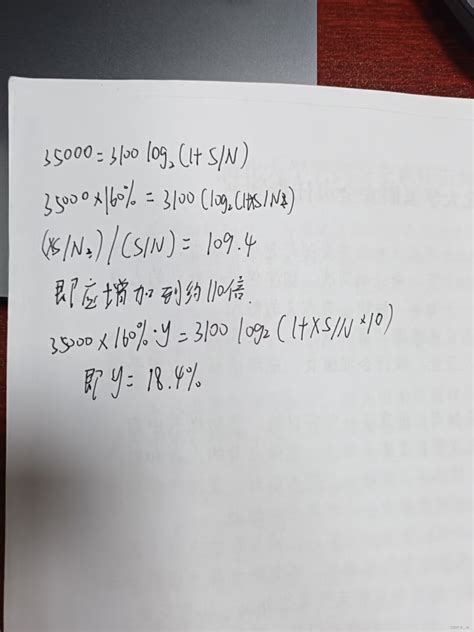 35000=3100 log₂(1+S/N)
35000×160%=3100(log₂(1+xS/N₂)
(xS/N₂)/(S/N)=109.4
即应增加到约110倍.
35000×160%·y=3100 log₂(1+xS/N×10)
即y=18.4%